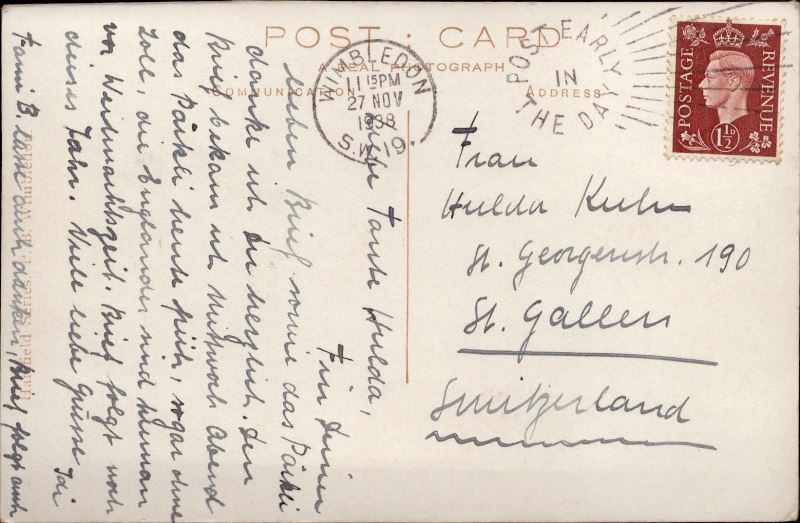 POST CARD
A REAL PHOTOGRAPH
COMMUNICATION
ADDRESS
WIMBLEDON
11 15PM
27 NOV
1938
S.W.19.
POST EARLY
IN
THE DAY
POSTAGE
REVENUE
1½D
Frau
Hulda Kuhn
St. Georgenstr. 190
St. Gallen
Switzerland
Liebe Tante Hulda,
Für Deinen
lieben Brief sowie das Päckli
danke ich Dir herzlich. Den
Brief bekam ich Mittwoch Abend
das Päckli heute früh, sogar ohne
Zoll, die Engländer sind human
vor Weihnachtszeit. Brief folgt noch
dieses Jahr. Viele liebe Grüsse Idi
B. lässt auch danken, Brief folgt auch